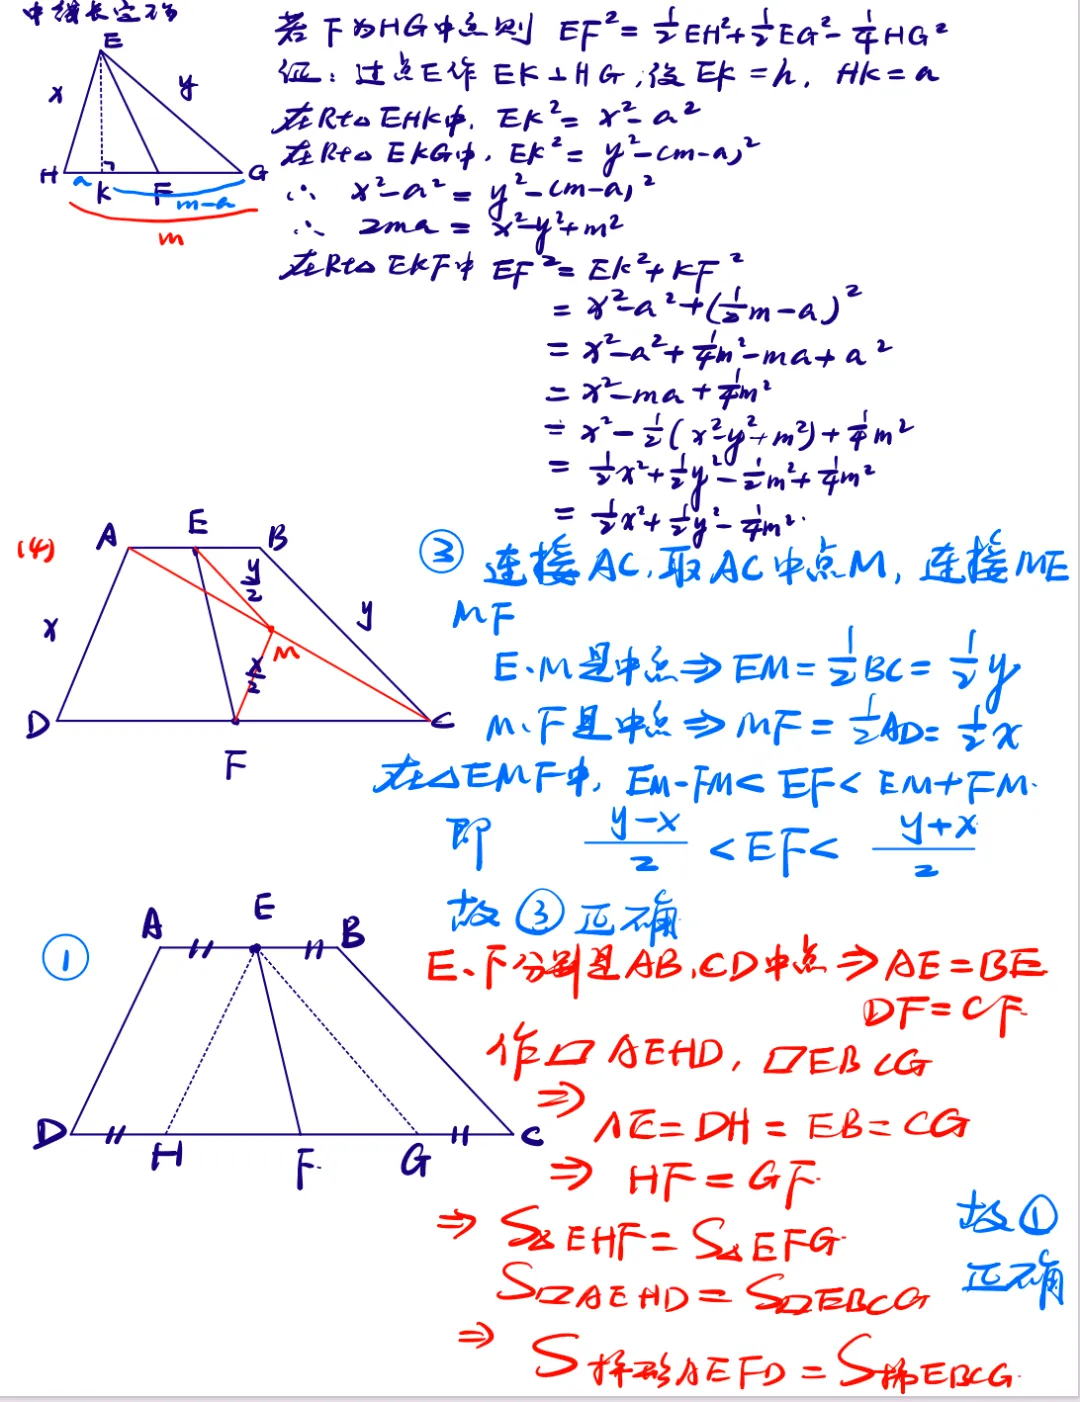 中线长定理
若F为HG中点则 EF²=½EH²+½EG²-¼HG²
证:过点E作EK⊥HG,设EK=h,HK=a
在Rt△EHK中,EK²=x²-a²
在Rt△EKG中,EK²=y²-(m-a)²
∴ x²-a²=y²-(m-a)²
∴ 2ma=x²-y²+m²
在Rt△EKF中 EF²=EK²+KF²
=x²-a²+(½m-a)²
=x²-a²+¼m²-ma+a²
=x²-ma+¼m²
=x²-½(x²-y²+m²)+¼m²
=½x²+½y²-½m²+¼m²
=½x²+½y²-¼m².
E
x
y
H
a
K
F
G
m-a
m
(4)
A
E
B
y/2
x
y
M
x/2
D
F
C
③ 连接AC,取AC中点M,连接ME
MF
E、M是中点⇒EM=½BC=½y
M、F是中点⇒MF=½AD=½x
在△EMF中,EM-FM<EF<EM+FM.
即 (y-x)/2<EF<(y+x)/2
故③正确
①
A
E
B
D
H
F
G
C
E、F分别是AB、CD中点⇒AE=BE
DF=CF
作▱AEHD,▱EBCG
⇒ AE=DH=EB=CG
⇒ HF=GF
⇒ S△EHF=S△EFG
S▱AEHD=S▱EBCG
⇒ S梯形AEFD=S梯EBCG
故①
正确